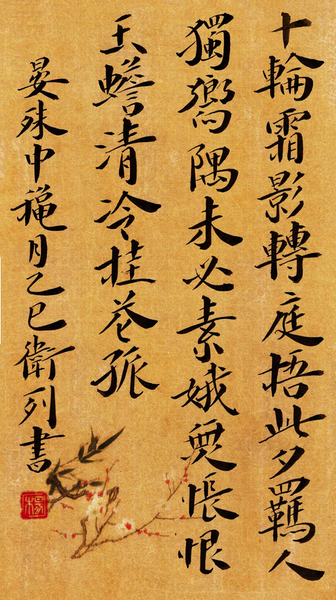 十輪霜影轉庭梧此夕羈人
獨嚮隅未必素娥無悵恨
玉蟾清冷桂花孤
晏殊中穐月乙巳衛列書